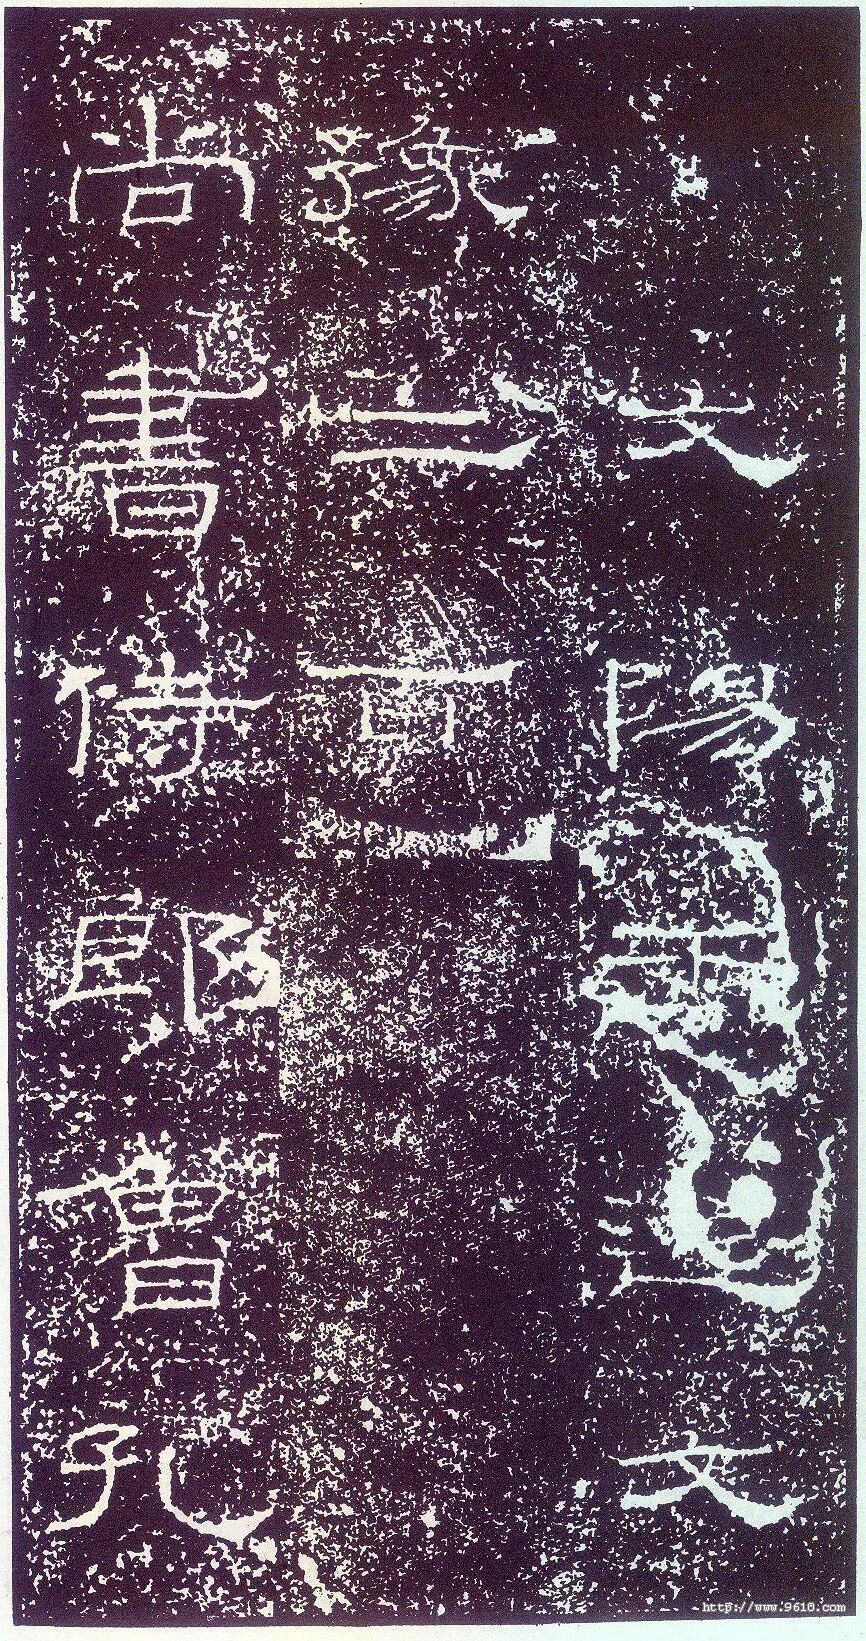 文陽王逸文
豫二百
尚書侍郎魯孔
http://www.9610.com